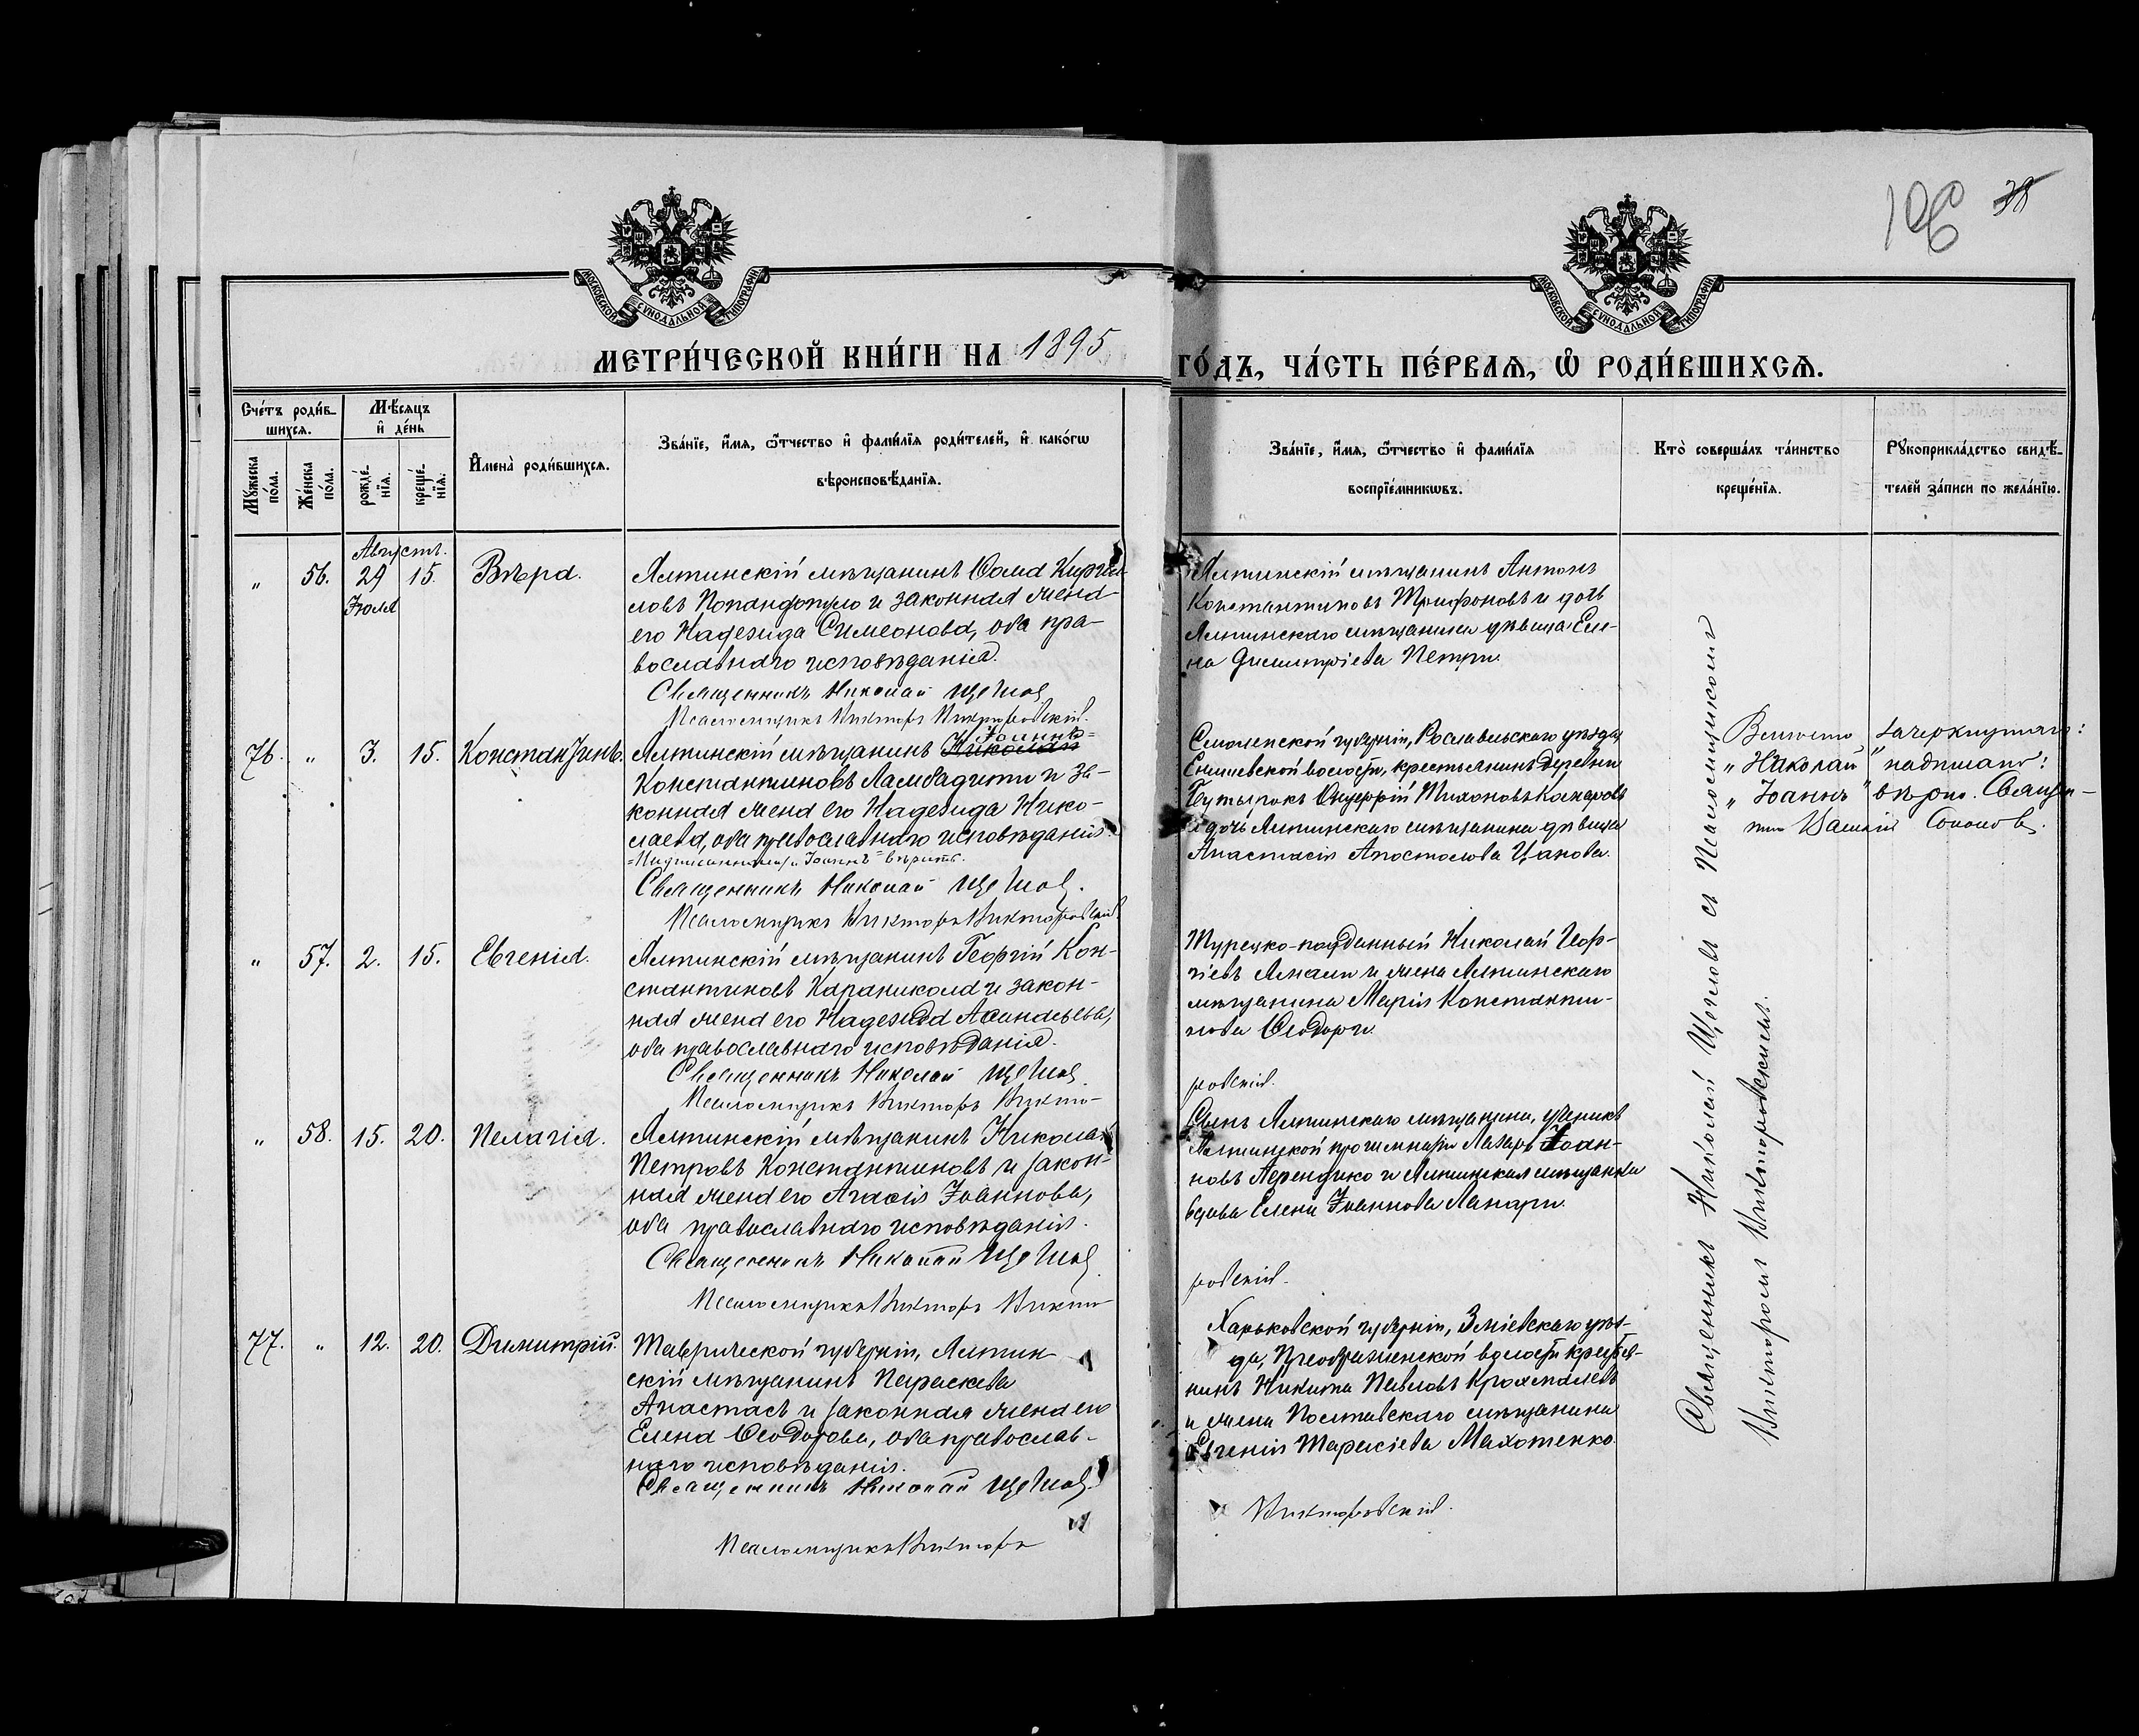 106 38
МОСКОВСКОЙ СѴНОДАЛЬНОЙ ТИПОГРАФІИ
МОСКОВСКОЙ СѴНОДАЛЬНОЙ ТИПОГРАФІИ
МЕТРИ́ЧЕСКОЙ КНИ́ГИ НА 1895 ГО́ДЪ, ЧА́СТЬ ПЕ́РВАЯ, Ѡ҆ РОДИ́ВШИХСЯ.
Сче́тъ роди́в-
шихся.
Мꙋ́жеска по́ла.
Же́нска по́ла.
Мѣ́сяцъ
и҆ де́нь
рожде́-
нїя.
креще́-
нїя.
И҆мена̀ роди́вшихся.
Зва́нїе, и҆́мя, ѻ҆́тчество и҆ фами́лїя роди́телей, и҆ како́гѡ
вѣроисповѣ́данїя.
Зва́нїе, и҆́мя, ѻ҆́тчество и҆ фами́лїя
воспрїе́мникѡвъ.
Кто̀ соверша́лъ та́инство
креще́нїя.
Рꙋкоприкла́дство свидѣ́-
телей за́писи по жела́нїю.
Августъ.
„ 56. 29 15. Вѣра.
Іюля
Ялтинскій мѣщанинъ Ѳома Кирил-
ловъ Попандопуло и законная жена
его Надежда Симеонова, оба пра-
вославнаго исповѣданія.
Священникъ Николай Щегловъ
Псаломщикъ Викторъ Викторовскій.
Ялтинскій мѣщанинъ Антонъ
Константиновъ Трифоновъ и дочь
Ялтинскаго мѣщанина дѣвица Еле-
на Димитріева Петри.
76. „ 3. 15. Константинъ.
Іоаннъ=
Ялтинскій мѣщанинъ Николай
Константиновъ Ламбадити и за-
конная жена его Надежда Нико-
лаева, оба православнаго исповѣданія.
=Надписанному „Іоаннъ“ вѣрить.
Священникъ Николай Щегловъ.
Псаломщикъ Викторъ Викторовскій.
Смоленской губерніи, Рославльскаго уѣзда,
волости, крестьянинъ деревни
Бутырокъ Онуфрій Тихоновъ
и дочь Ялтинскаго мѣщанина дѣвица
Анастасія Апостолова Цакова.
Вмѣсто зачеркнутаго:
„Николай“ надписано:
„Іоаннъ“ вѣрно. Священ-
никъ Василій
„ 57. 2. 15. Евгенія.
Ялтинскій мѣщанинъ Георгій Кон-
стантиновъ Караникола и закон-
ная жена его Надежда
оба православнаго исповѣданія.
Священникъ Николай Щегловъ
Псаломщикъ Викторъ Викто-
Турецко-подданный Николай Геор-
гіевъ и жена Ялтинскаго
мѣщанина Марія Константи-
нова
ровскій.
„ 58. 15. 20. Пелагія.
Ялтинскій мѣщанинъ Николай
Петровъ Константиновъ и закон-
ная жена его Іоаннова,
оба православнаго исповѣданія.
Священникъ Николай Щегловъ
Псаломщикъ Викторъ Викто-
Сынъ Ялтинскаго мѣщанина, ученикъ
Ялтинской прогимназіи Лазарь Іоан-
новъ и Ялтинская мѣщанка
вдова Елена Іоаннова
ровскій.
77. „ 12. 20. Димитрій.
Таврической губерніи, Ялтин
скій мѣщанинъ Параскева
Анастасъ и законная жена его
Елена Ѳеодорова, оба православ-
наго исповѣданія.
Священникъ Николай Щегловъ.
Псаломщикъ Викторъ
Харьковской губерніи, Зміевскаго уѣз-
да, Преображенской волости крестья-
нинъ Никита Павловъ Крохмалевъ
и жена Полтавскаго мѣщанина
Евгенія Тарасіева Махотенко.
Викторовскій.
Священникъ Николай Щегловъ съ Псаломщикомъ
Викторомъ Викторовскимъ.